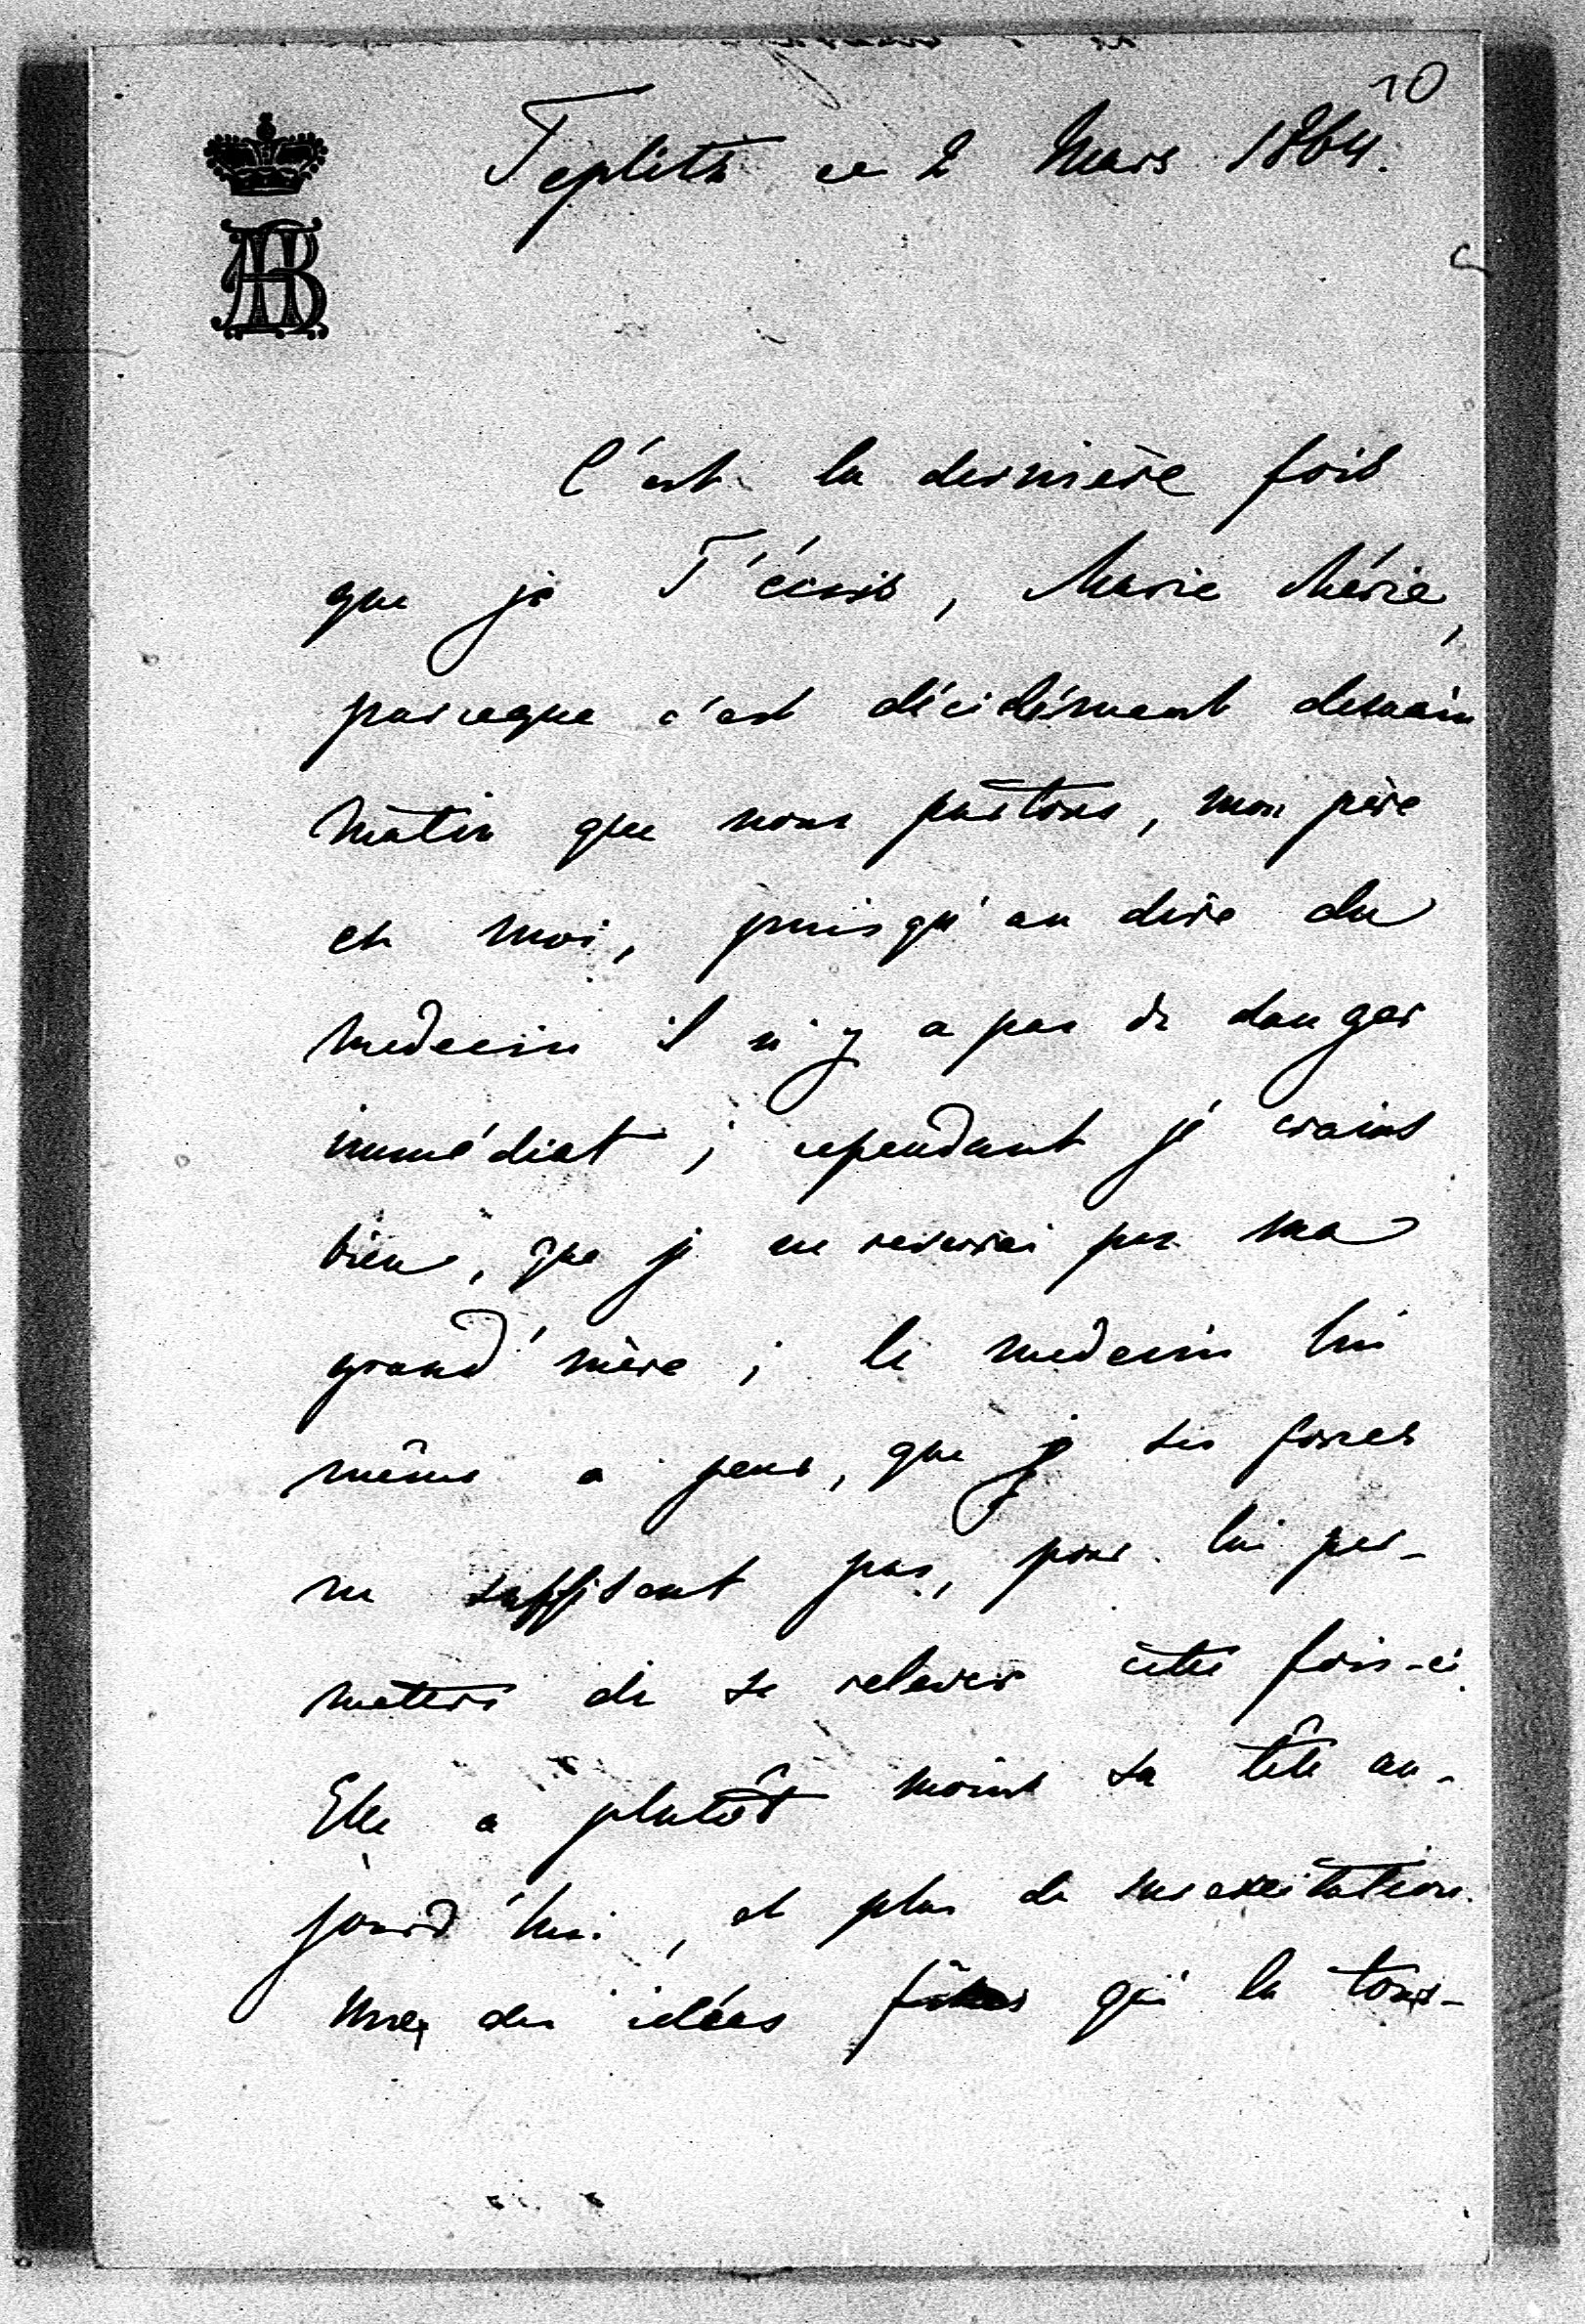 10
Teplitz ce 2 Mars 1864.
AB
C'est la dernière fois
que je T'écris, Marie chérie,
parceque c'est décidément demain
matin que nous partons, mon père
et moi, puisqu'au dire du
medecin il n'y a pas de danger
immédiat ; cependant je crains
bien, que je ne reverrai pas ma
grand'mère ; le medecin lui
même a peur, que ses forces
ne suffisent pas, pour lui per-
mettre de se relever cette fois-ci.
Elle a plutôt moins sa tête au-
jourd'hui, et plus de surexcitation.
des idées fixes qui la tour-